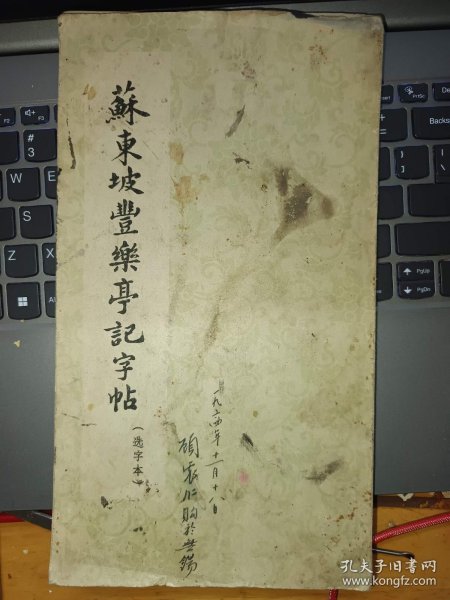 蘇東坡豐樂亭記字帖
（选字本）
一九六四年十一月十八日
购於無锡
孔夫子旧书网
www.kongfz.com